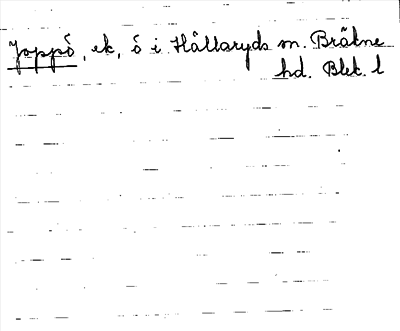 Joppó, ek, ó i Hållaryds sn. Bräkne
hd. Blek. l